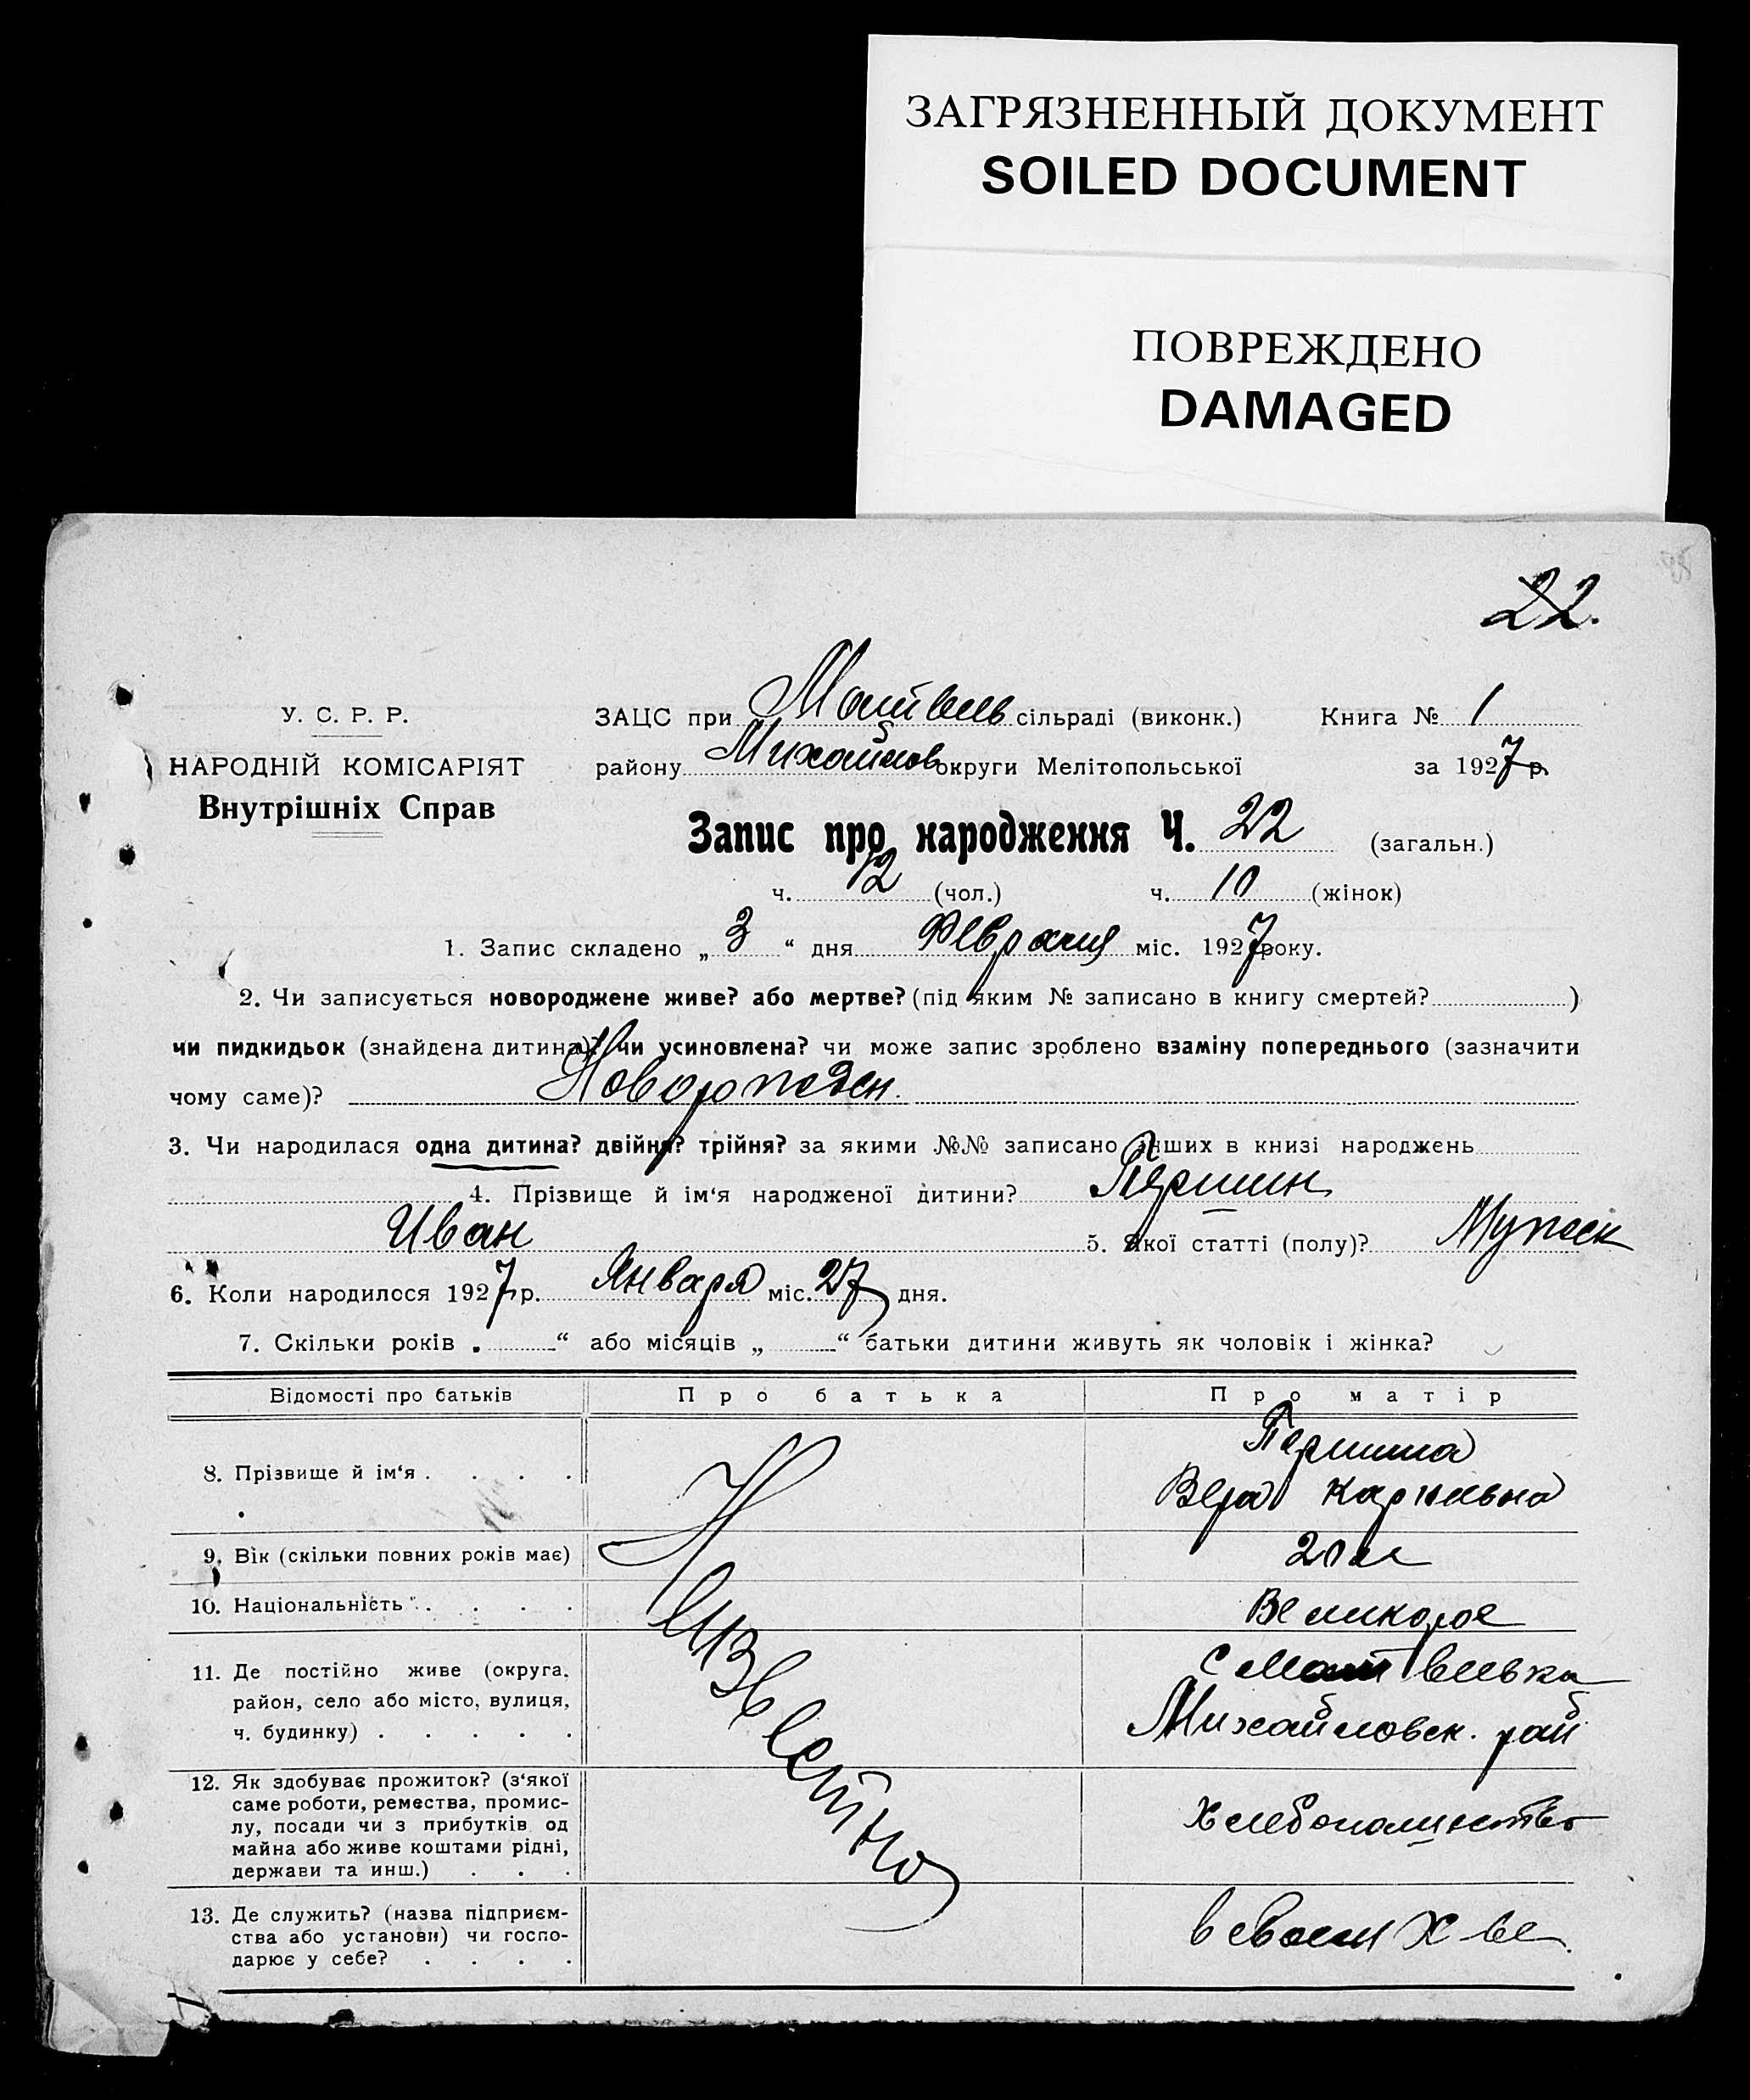 ЗАГРЯЗНЕННЫЙ ДОКУМЕНТ
SOILED DOCUMENT
ПОВРЕЖДЕНО
DAMAGED
22.
У. С. Р. Р.
НАРОДНІЙ КОМІСАРІЯТ
Внутрішніх Справ
ЗАЦС при Матвеев сільраді (виконк.) Книга № 1
району Михайлов округи Мелітопольської за 1927 р.
Запис про народження Ч. 22 (загальн.)
ч. 12 (чол.) ч. 10 (жінок)
1. Запис складено „ 3 “ дня Февраля міс. 1927 року.
2. Чи записується новороджене живе? або мертве? (під яким № записано в книгу смертей? )
чи пидкидьок (знайдена дитина)? чи усиновлена? чи може запис зроблено взаміну попереднього (зазначити
чому саме)? Новорожден.
3. Чи народилася одна дитина? двійня? трійня? за якими №№ записано інших в книзі народжень
4. Прізвище й ім‘я народженої дитини? Першин
Иван 5. Якої статті (полу)? Мужск
6. Коли народилося 1927 р. Января міс. 27 дня.
7. Скільки років „ “ або місяців „ “ батьки дитини живуть як чоловік і жінка?
Відомості про батьків Про батька Про матір
8. Прізвище й ім‘я . . . . Першина
Вера Карпевна
9. Вік (скільки повних років має) 20 л
10. Національність . . . . Великорос
Неизвестно
11. Де постійно живе (округа, с Матвеевка
район, село або місто, вулиця, Михайловск. рай
ч. будинку) . . . . .
12. Як здобуває прожиток? (з‘якої
саме роботи, ремества, промис-
лу, посади чи з прибутків од Хлебопашество
майна або живе коштами рідні,
держави та инш.) . . .
13. Де служить? (назва підприєм-
ства або установи) чи госпо- в своем х ве
дарює у себе? . . . .